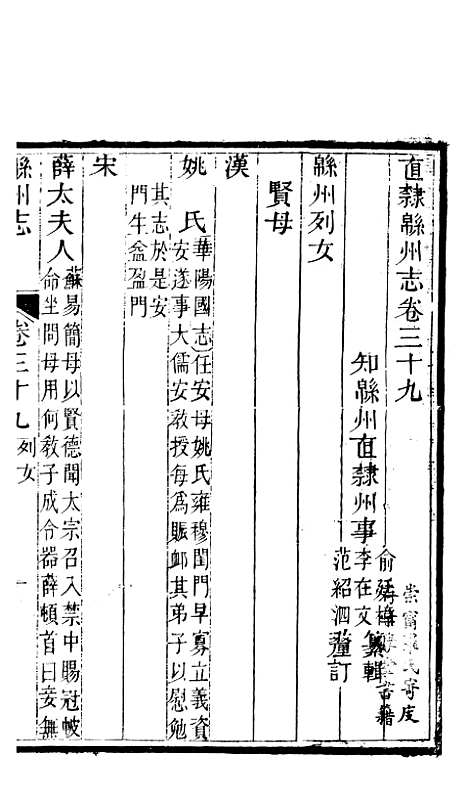 直隸緜州志卷三十九
知緜州直隸州事
李在文
纂輯
范紹泗
釐訂
緜州列女
賢母
漢
姚氏
華陽國志任安母姚氏雍穆閨門早寡立義資
安遂事大儒安敎授每爲賑䘏其弟子以慰勉
其志於是安
門生盆盈門
宋
薛太夫人
蘇易簡母以賢德聞太宗召入禁中賜冠帔
命坐問母用何敎子成令器薛頓首曰妾無
緜州志
卷三十九 列女
一